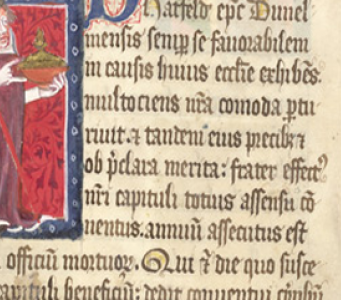 Hatfeld ep̄c Dunel
mensis semꝑ se fauorabilem
in causis huius eccl̄ie exhibēs
multociens nr̄a comoda ꝓcu
riuit. ⁊ tandem eius precibꝫ ⁊
ob p̄clara merita: frater effect᷒
nr̄i capituli totius assensu cō
uentus. annuū assecutus est
officiū mortuoꝝ. Qui ⁊ die quo susce
capituli beneficiū: dedit conuentui